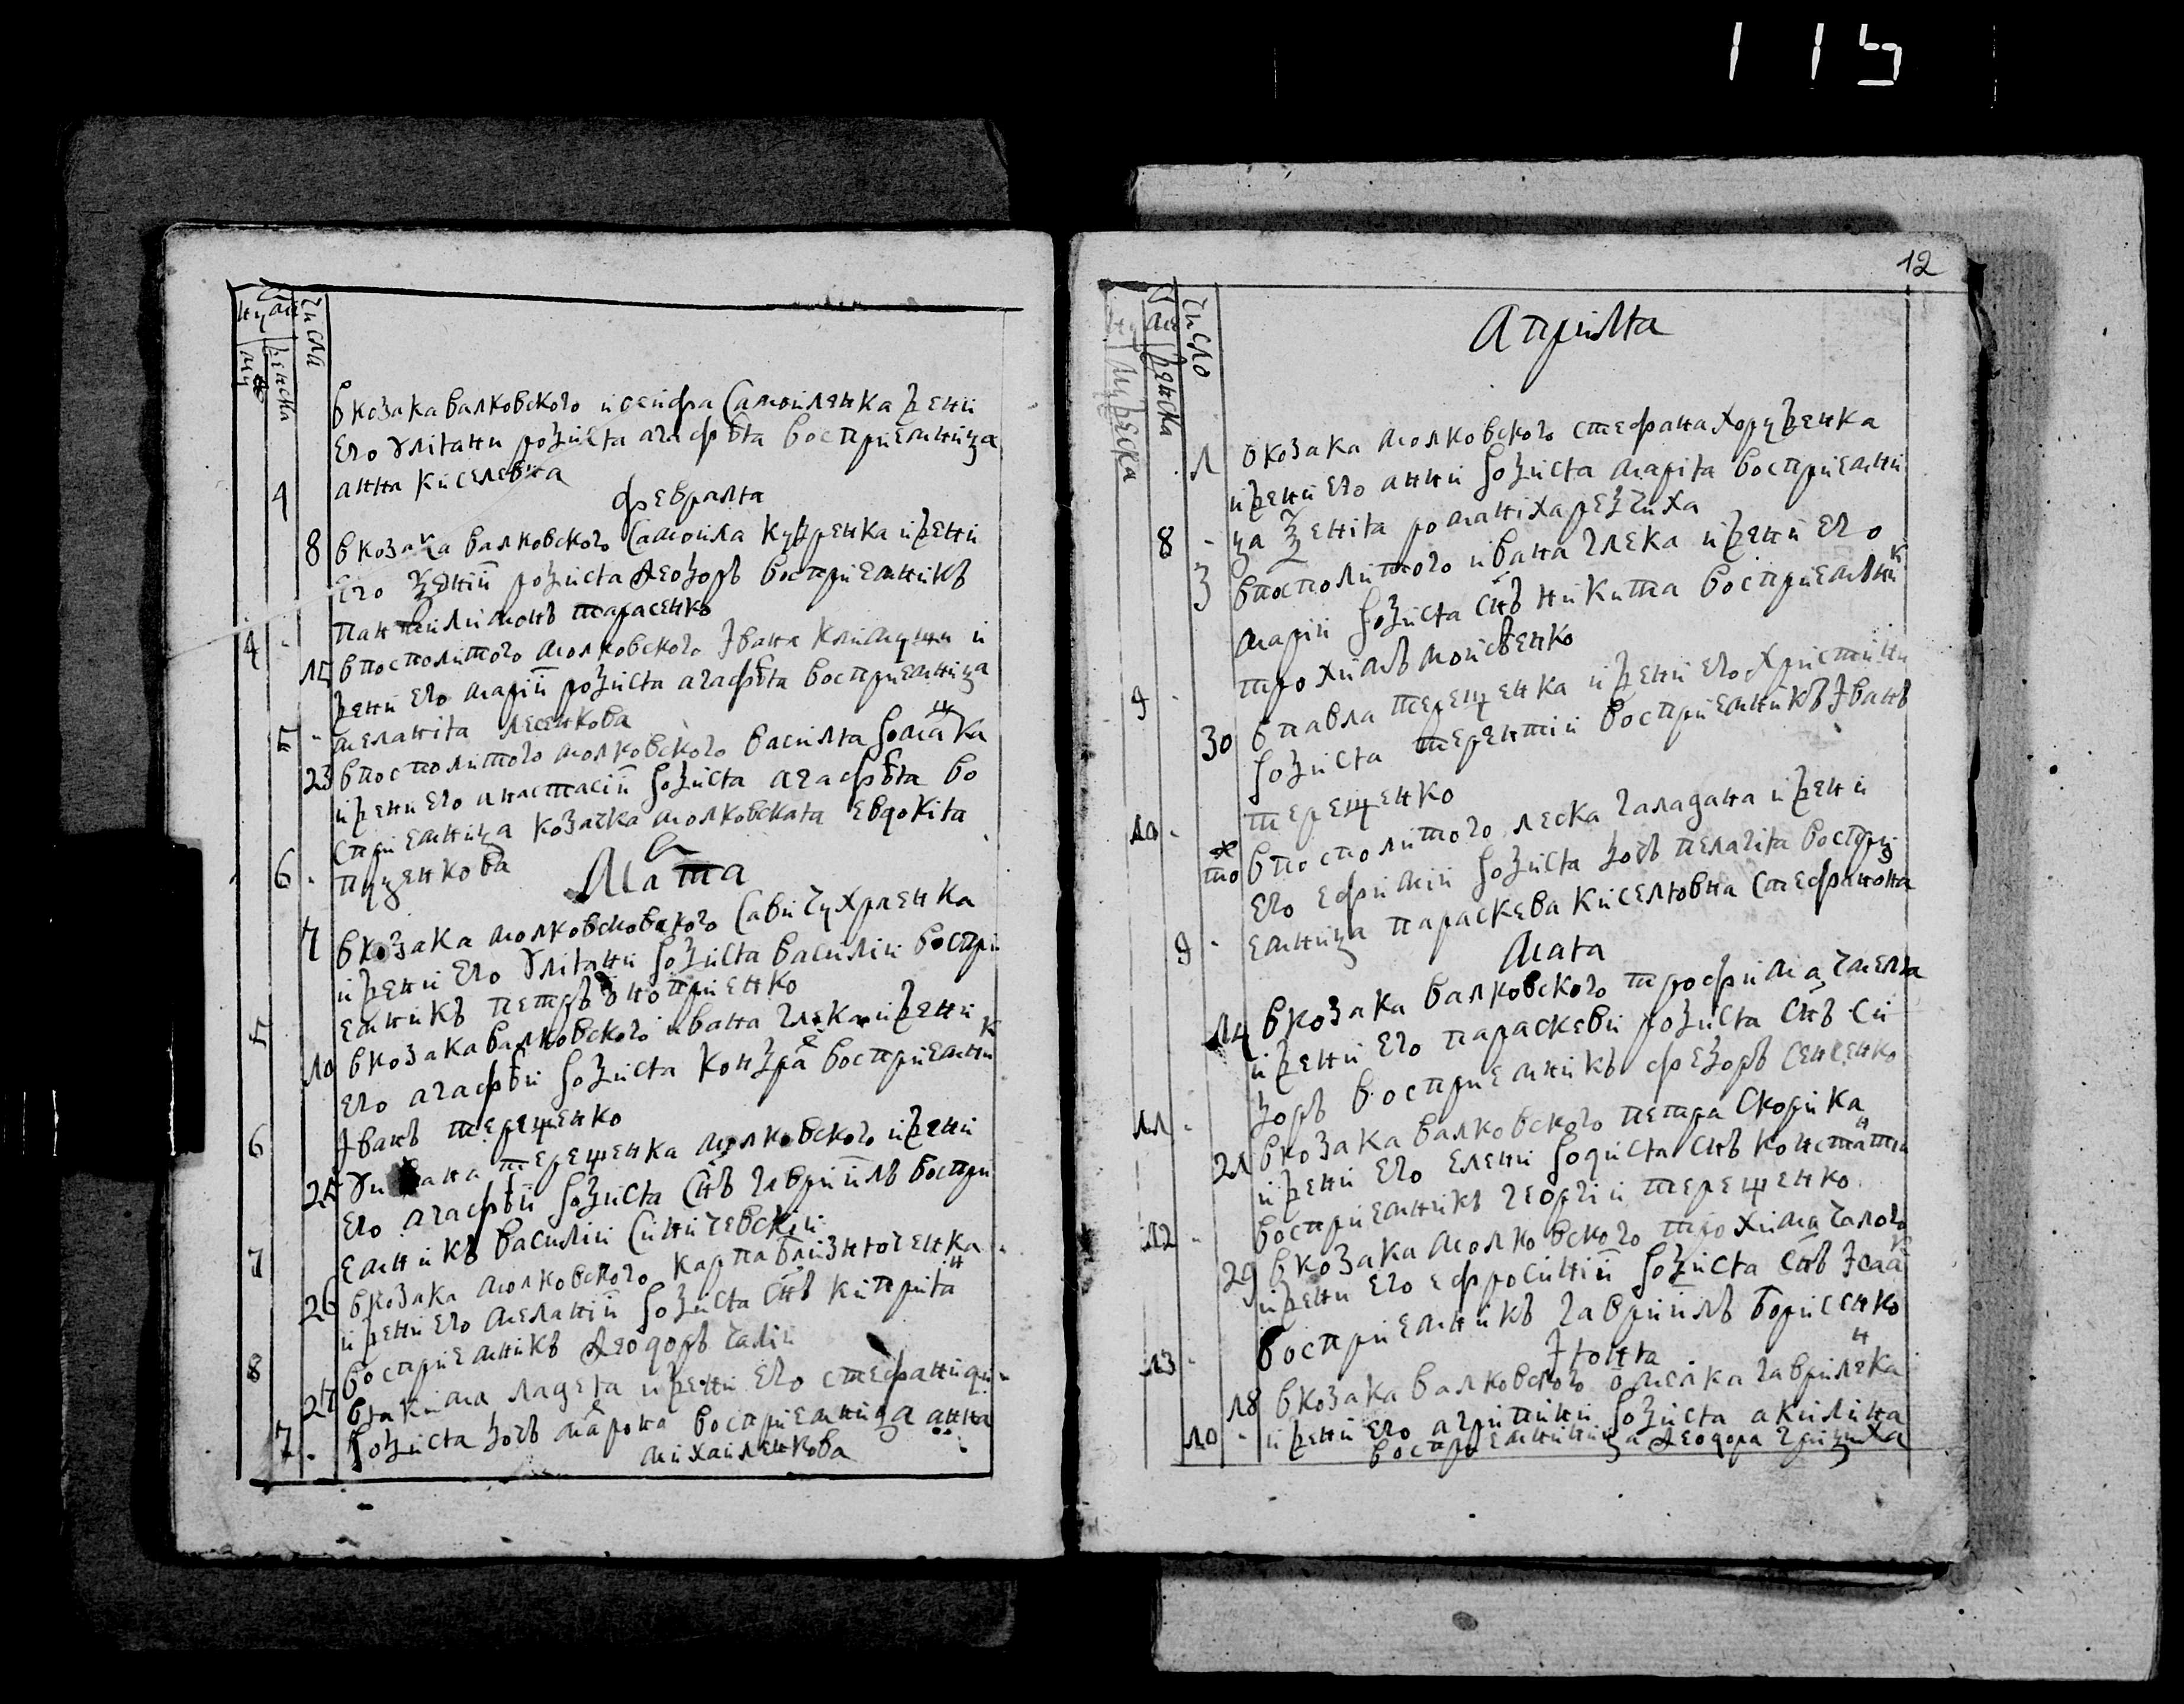 115
12
числа
женска
в козака валковского иосифа Самоиленка жени
его Улiяни родися агафѣя восприемница
анна киселевна
4
февраля
8 в козака валковского Самоила Куцренка и жени
его Ксении родися Ѳеодоръ восприемникъ
пантилимонъ тарасенко
4
15 в посполитого молковского Iвана Климуши и
жени его марiи родися агафѣя восприемница
меланiя лесенкова
5
23 в посполитого молковского василя ромашка
и жени его анастасiи родися агафѣя во
сприемница козачка молковская евдокiя
пуценкова
6
Марта
7 в козака молковсковского Сави чухраенка
и жени его Улiяни родися василiи воспри
емникъ петръ оноприенко
5
10 в козака валковского ивана глека и жени
его агафѣи родися кондрат восприемник
Iванъ терещенко
6
25 у ивана терещенка молковского и жени
его агафѣи родися снъ гаврiилъ воспри
емникъ василiи Синичевскiи
7
26 в козака молковского карпа близнюченка
и жени его меланiи родися снъ киприян
восприемникъ Ѳеодоръ галiи
8
27 в якима ладея и жени его стефаниди
родися дочъ матрона восприемница анна
михаиленкова
7
число
женска
мужеска
Априля
1 в козака молковского стефана хоруженка
и жени его анни родися марiя восприемни
ца Ксенiя романiха резчиха
8
3 в посполитого ивана глека и жени его
марiи родися снъ никита восприемник
трохимъ моисѣенко
9
30 в павла терещенка и жени его христини
родися терентiи восприемникъ Iванъ
терещенко
10
то в посполитого леска галадана и жени
его ефимiи родися дочъ пелагiя воспри
емница параскева киселювна стефанова
9
Мая
14 в козака валковского трофима, чмеля
и жени его параскеви родися снъ си
доръ восприемникъ федоръ сенченко
11
21 в козака валковского петра скорика
и жени его елени родися снъ константи
восприемникъ георгiи терещенко
12
29 в козака молковского трохима галого
и жени его ефросинiи родися снъ Iсаак
восприемникъ гаврiилъ борисенко
13
Iюния
18 в козака валковского омелка гавриленка
и жени его агрипини родися акилина
восприемница Ѳеодора грициха
10